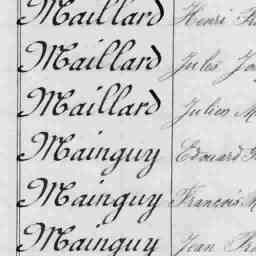 Maillard Henri
Maillard Jules
Maillard Julien M
Mainguy Edouard
Mainguy François
Mainguy Jean